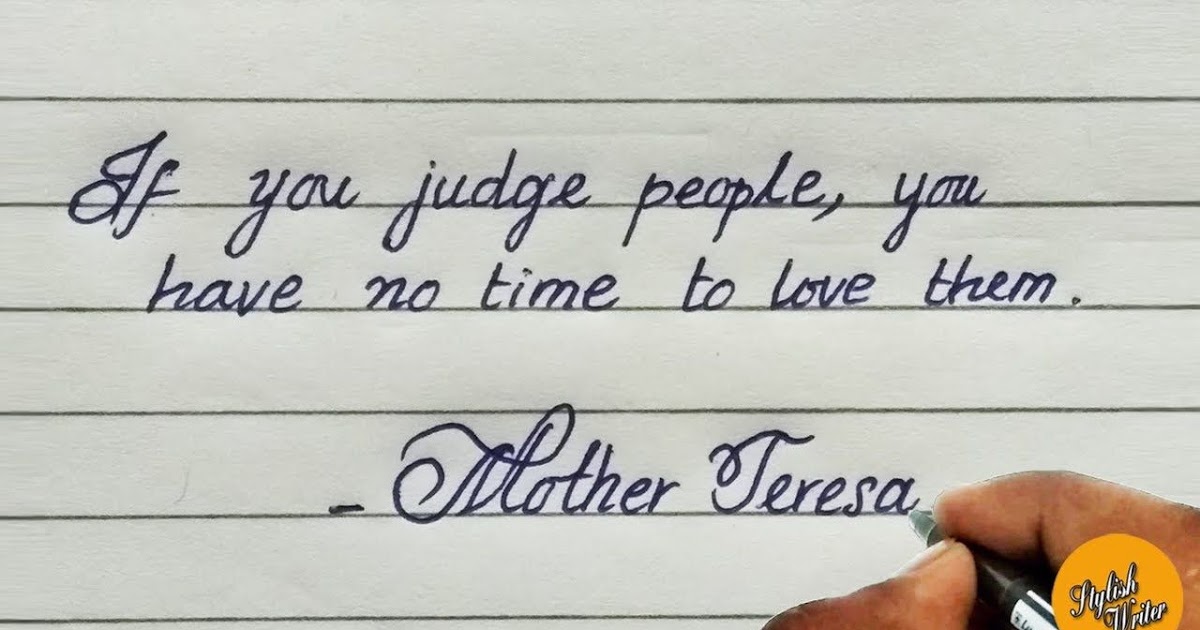 If you judge people, you
have no time to love them.
- Mother Teresa
Stylish
Writer